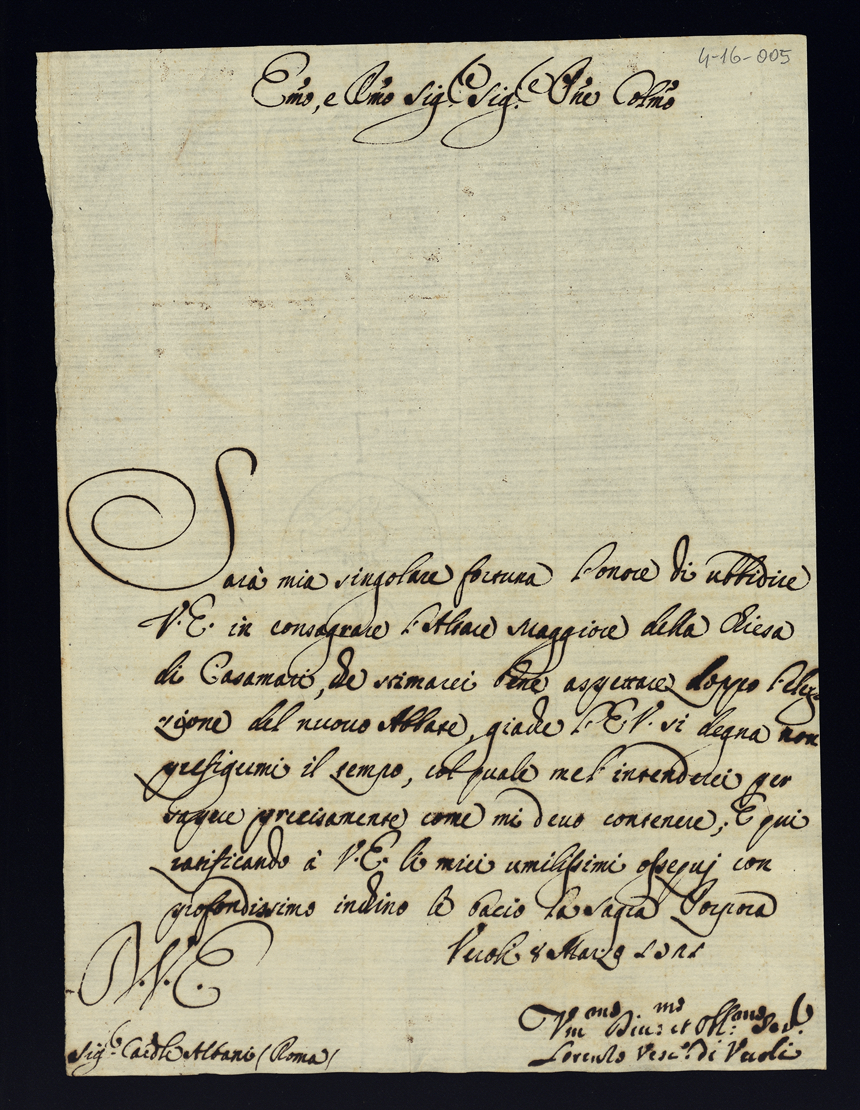 4-16-005
Emo, e Rmo Sigre Sigre Pne Colmo
Sarà mia singolare fortuna l'onore di ubbidire
V.E. in consagrare l'Altare Maggiore della Chiesa
di Casamari, che stimarei bene aspettare doppo l'elez-
zione del nuovo Abbate, giache l'E.V. si degna non
prefigermi il tempo, col quale me l'intenderei per
sapere precisamente come mi devo contenere; E qui
ratificando à V.E. li miei umilissimi ossequj con
profondissimo inchino le bacio la Sagra Porpora
Veroli 8 Marzo
V.E.
Vmmo Divmo et Obbmo Serre
Sigre Cardle Albani (Roma)
Lorenzo Vesco di Veroli